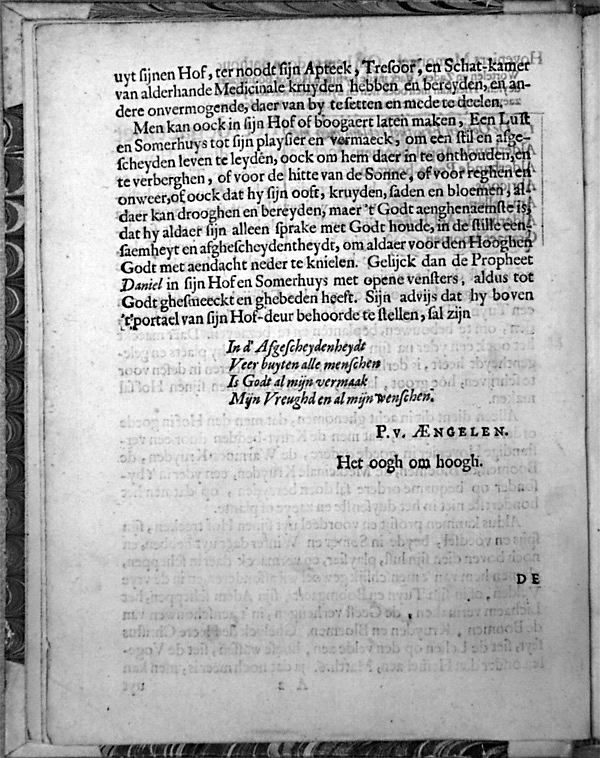 uyt sijnen Hof, ter noodt sijn Apteek, Tresoor, en Schat-kamer
van alderhande Medicinale kruyden hebben en bereyden, en an-
dere onvermogende, daer van by te setten en mede te deelen.
Men kan oock in sijn Hof of boogaert laten maken, Een Lust
en Somerhuys tot sijn playsier en vermaeck, om een stil en afge-
scheyden leven te leyden, oock om hem daer in te onthouden, en
te verberghen, of voor de hitte van de Sonne, of voor reghen en
onweer, of oock dat hy sijn ooft, kruyden, saden en bloemen, al-
daer kan drooghen en bereyden, maer 't Godt aenghenaemste is,
dat hy aldaer sijn alleen sprake met Godt houde, in de stille een-
saemheyt en afghescheydentheydt, om aldaer voor den Hooghen
Godt met aendacht neder te knielen. Gelijck dan de Propheet
Daniel in sijn Hof en Somerhuys met opene vensters, aldus tot
Godt ghesmeeckt en ghebeden heeft. Sijn advijs dat hy boven
't portael van sijn Hof-deur behoorde te stellen, sal zijn
In d' Afgescheydenheydt
Veer buyten alle menschen
Is Godt al mijn vermaak
Mijn Vreughd en al mijn wenschen.
P. v. ÆNGELEN.
Het oogh om hoogh.
DE